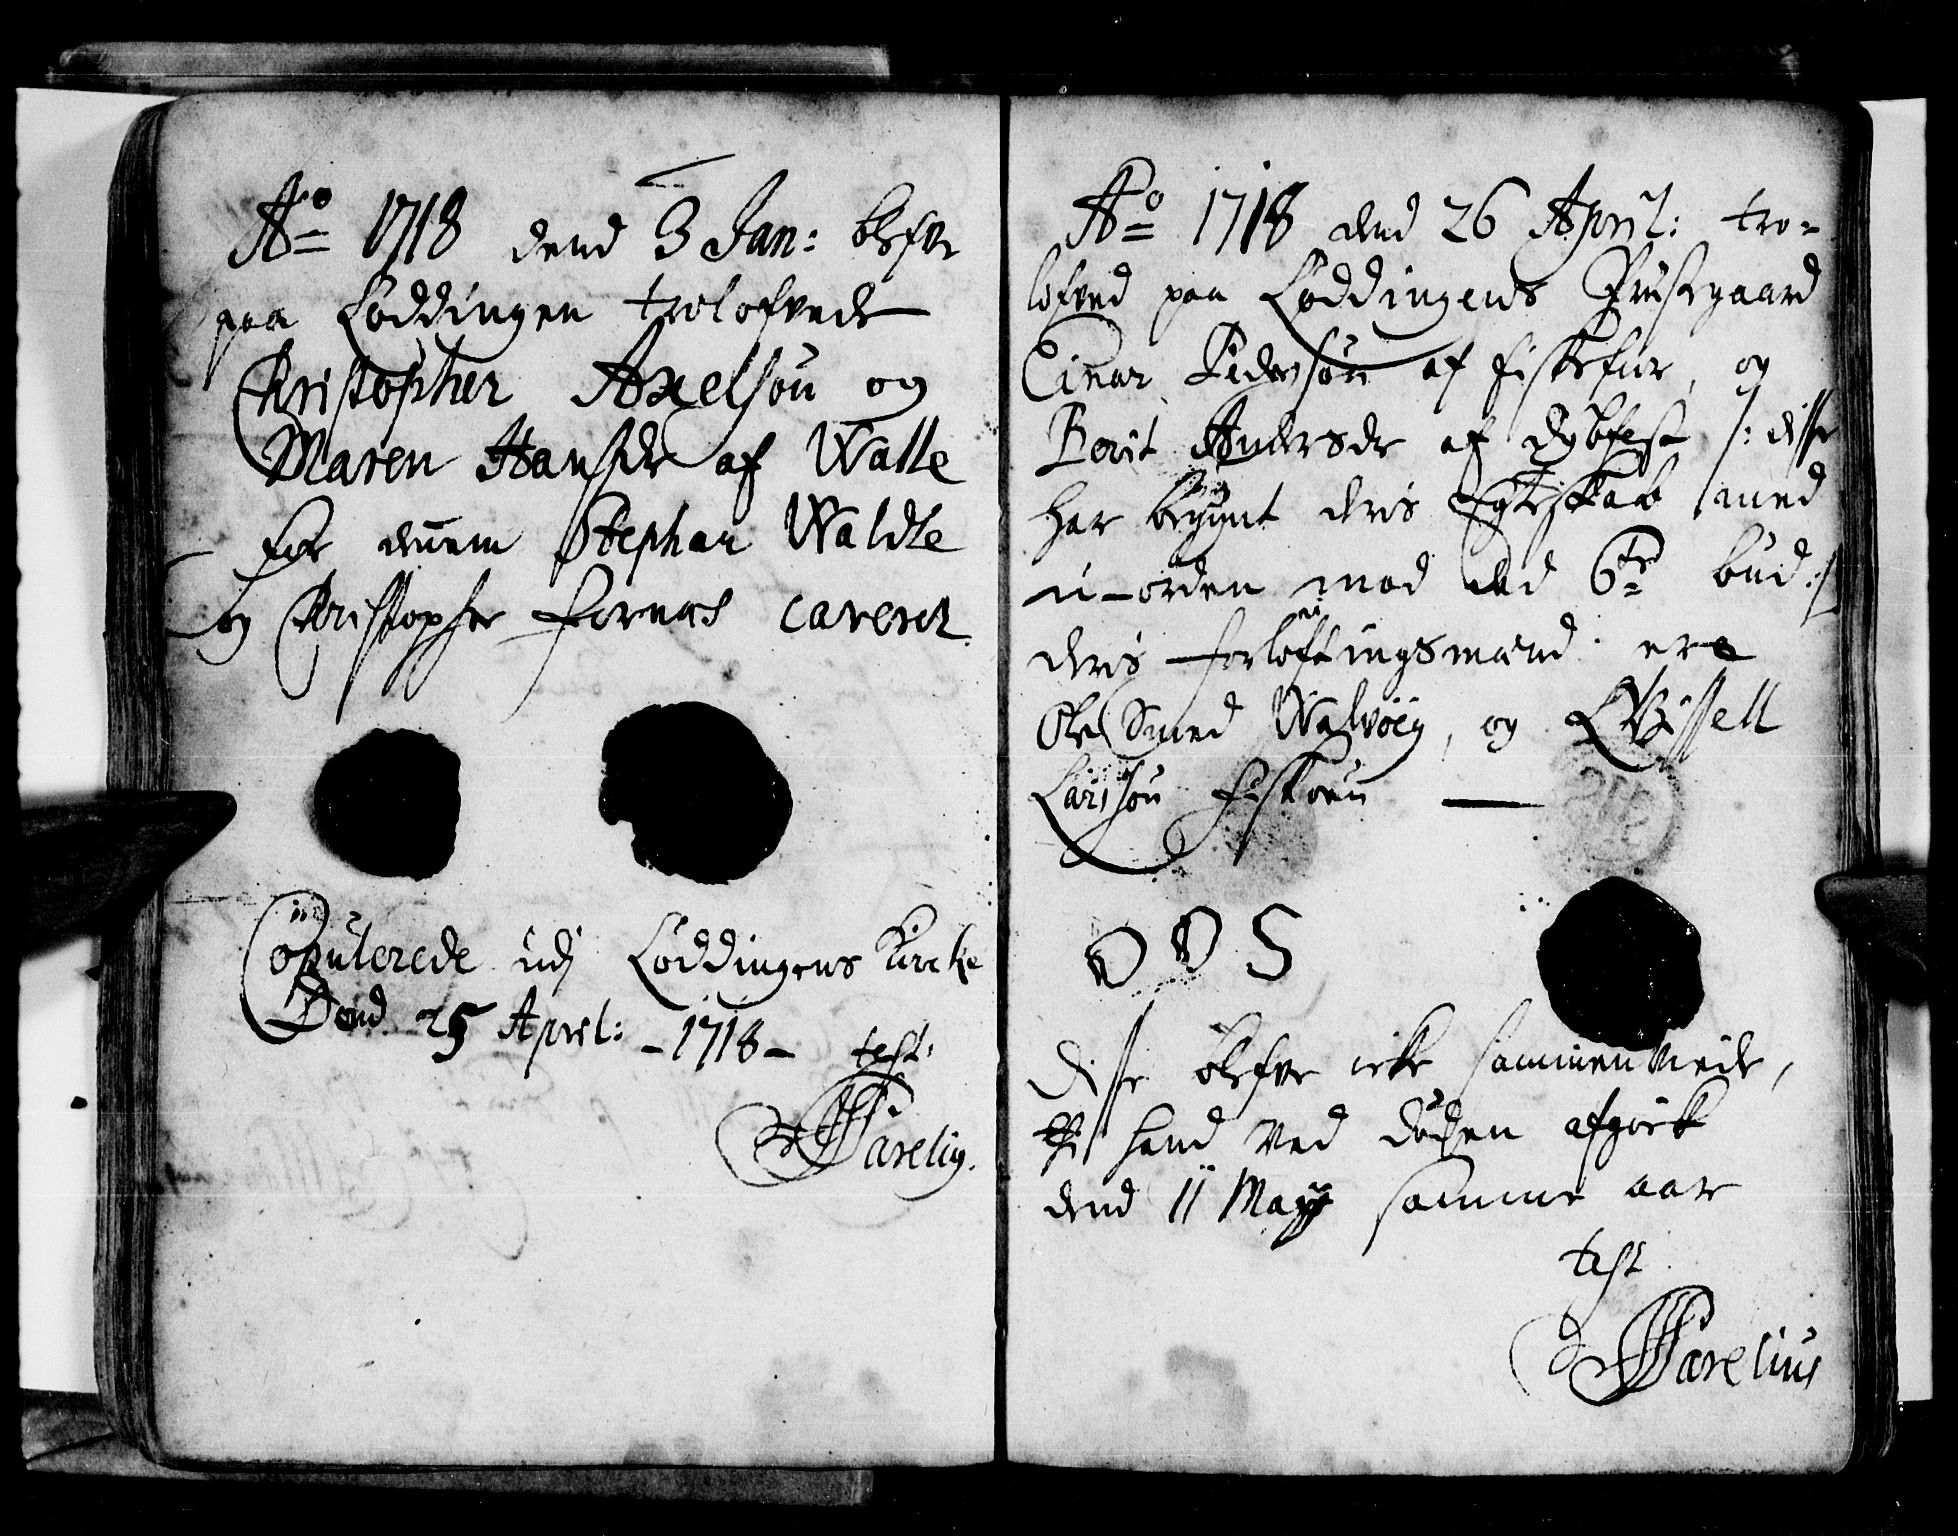 Aº 1718 dend 3 Jan: blefve
paa Løddingen trolofvede
Christopher Axelsøn og
Maren Hansdr af Walle
for dennem Stephan Waldle
og Christopher Fornæs caverer
Copulerede udj Løddingens Kircke
Dend 25 April: -1718- test:
Parelig.
Aº 1718 dend 26 April: tro-
lofved paa Løddingens Præstegaard
Einar Pedersøn af Fiskefiør, og
Berit Andersdr af Dybfest /: disse
har begynt deris Egteskab med
u-orden mod ded 6te bud :/
deris forlofningsmænd ere
Ole Smed Walvøeg, og
Larssøn Fiskøen —
O O S
disse blefve icke sammenviede,
thi hand ved døden afgick
dend 11 Maij samme aar
test
Parelius